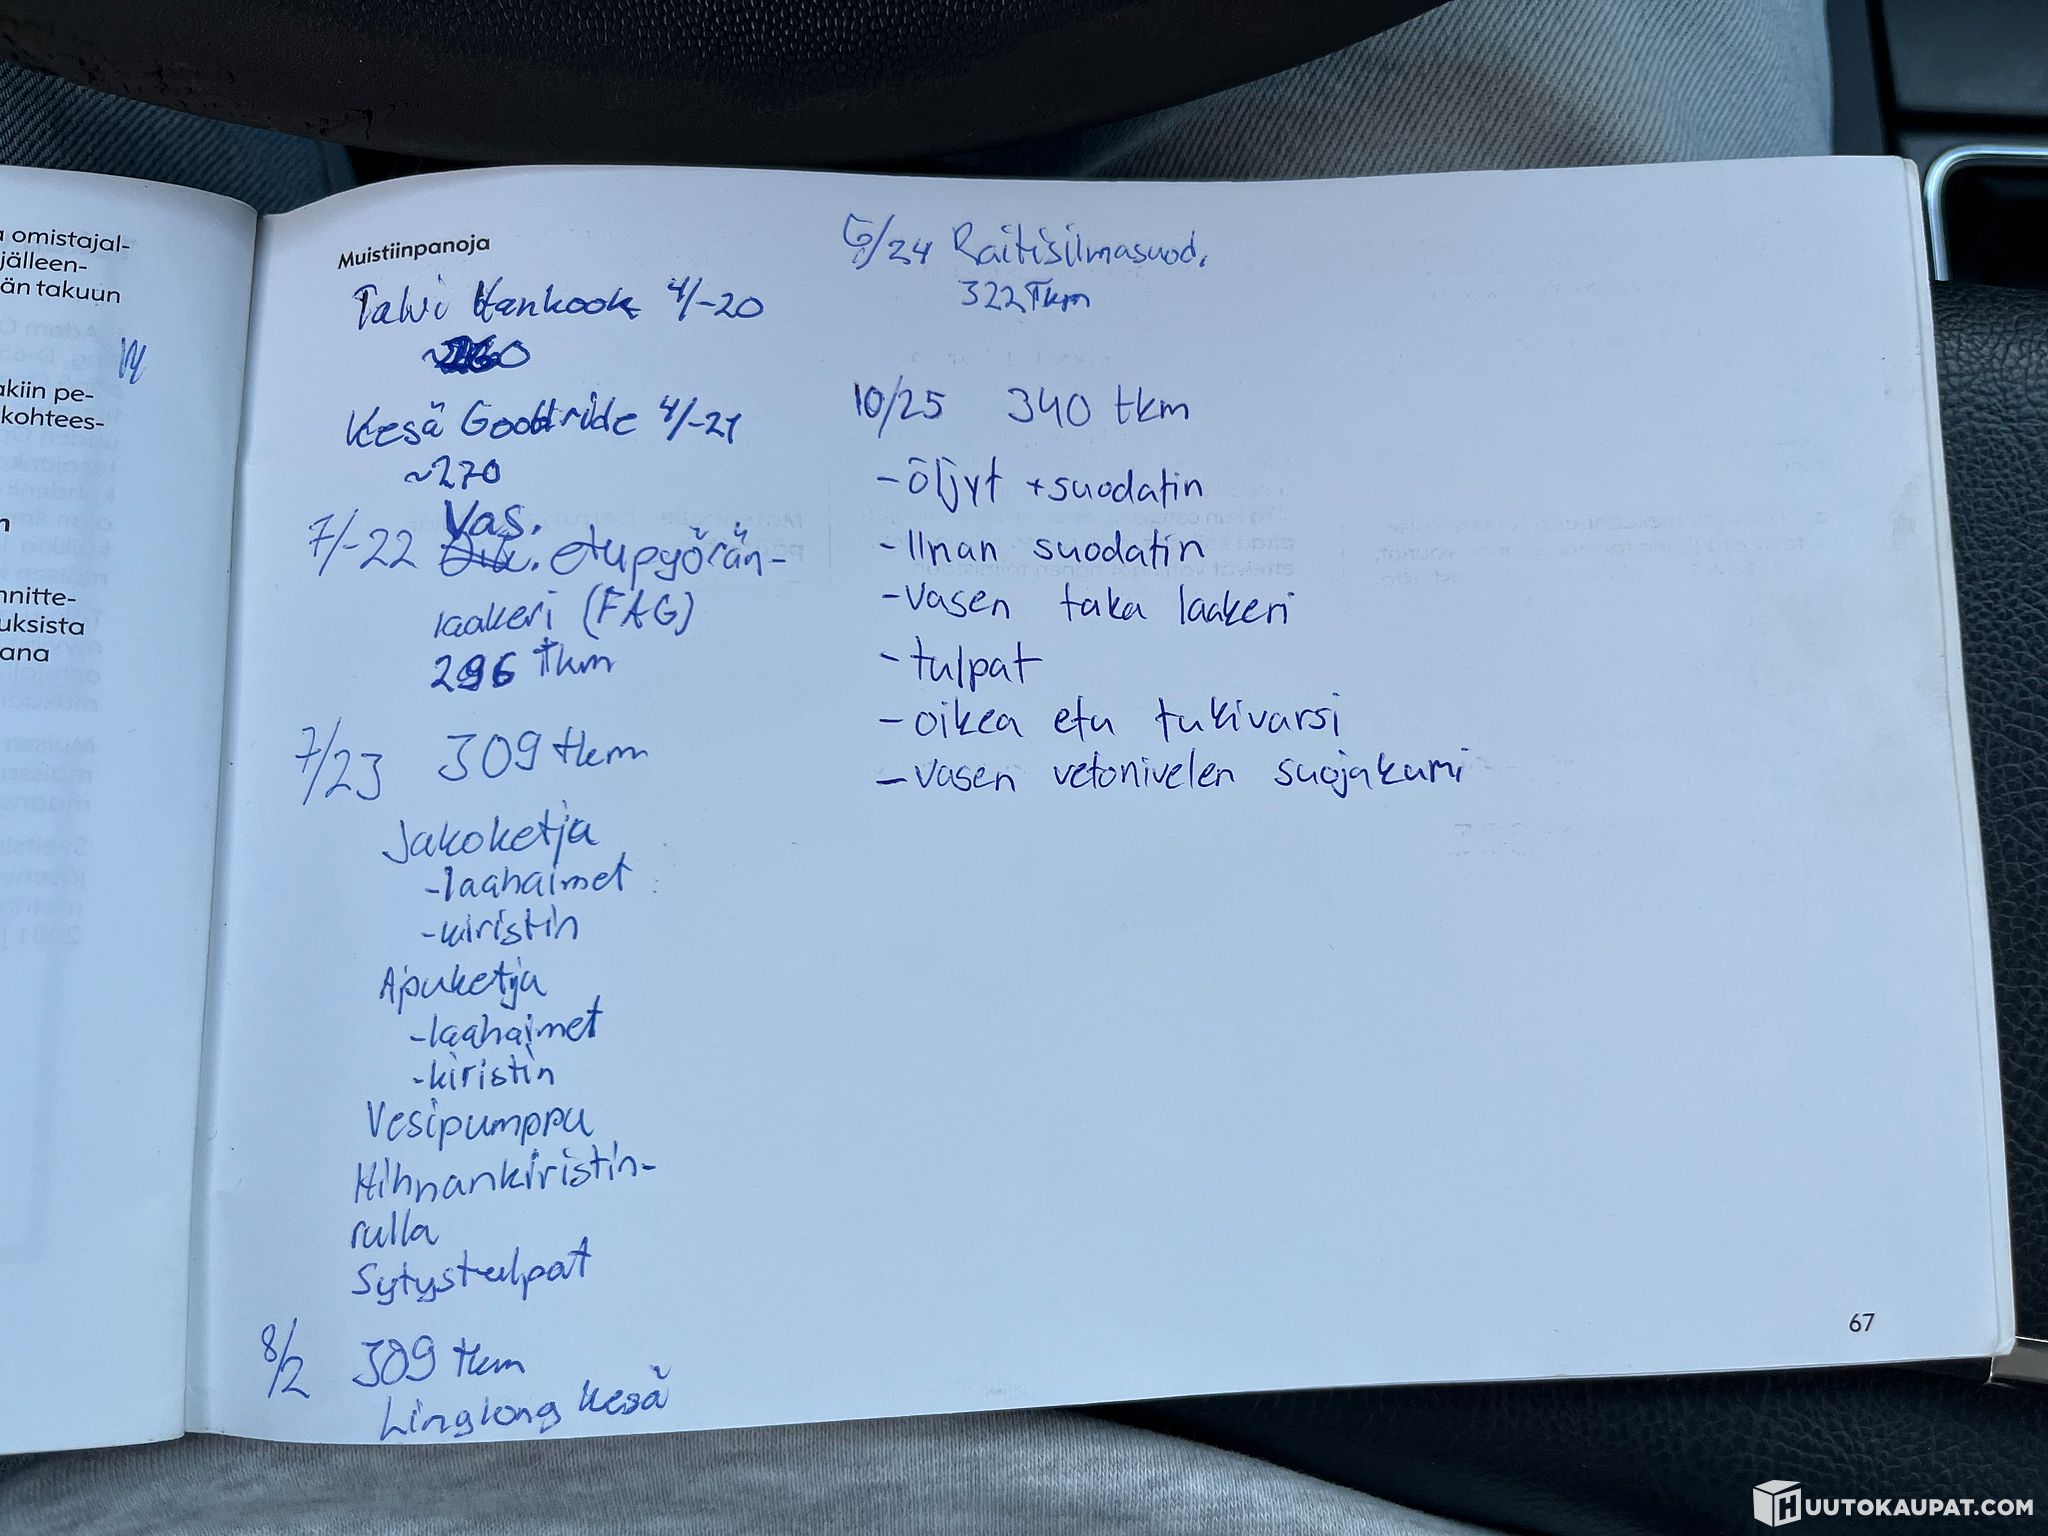 omistajal-
jälleen-
än takuun
akiin pe-
kohtees-
n
nnitte-
uksista
ana
Muistiinpanoja
Talvi Hankook 4/-20
Kesä Goodride 4/-21
~270
Vas.
7/-22 Oik. etupyörän-
laakeri (FAG)
296 Tkm
7/23 309 tkm
Jakoketja
-laahaimet
-kiristin
Apuketja
-laahaimet
-kiristin
Vesipumppu
Hihnankiristin-
rulla
Sytystulpat
8/2 309 tkm
Linglong kesä
6/24 Raitisilmasuod.
322 Tkm
10/25 340 tkm
- öljyt + suodatin
- Ilnan suodatin
- vasen taka laakeri
- tulpat
- oikea etu tukivarsi
- vasen vetonivelen suojakumi
67
HUUTOKAUPAT.COM